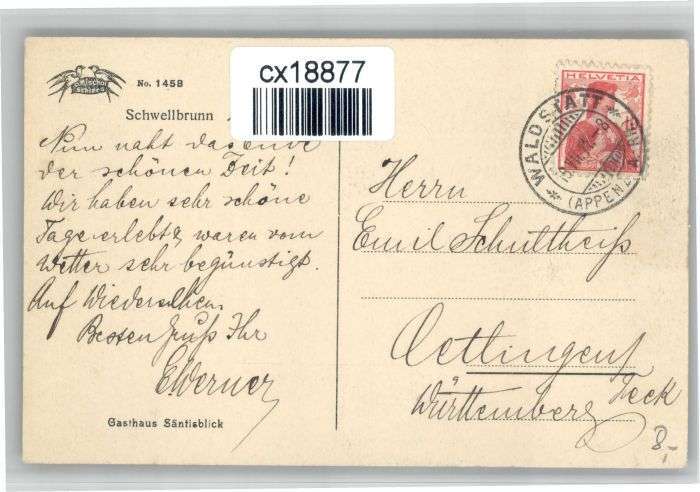 No. 1458
cx18877
Schwellbrunn
Nun naht das Ende
der schönen Zeit!
Wir haben sehr schöne
Tage erlebt, waren vom
Wetter sehr begünstigt.
Auf Wiedersehen.
Besten Gruß Ihr
E. Werner
Gasthaus Säntisblick
HELVETIA
WALDSTATT
(APPENZ.
Herrn
Emil Schultheiß
Oetlingen
Teck
Württemberg
8,-